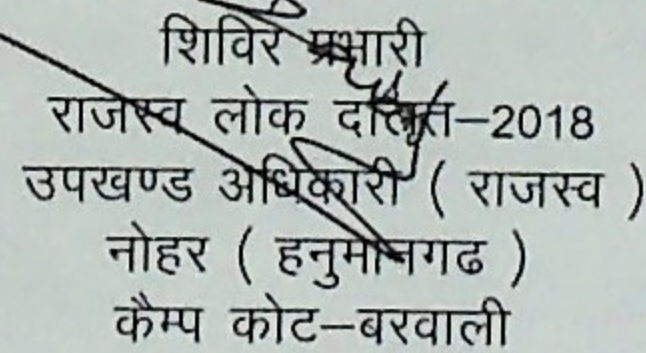 शिविर प्रभारी
राजस्व लोक दालत-2018
उपखण्ड अधिकारी ( राजस्व )
नोहर ( हनुमानगढ )
कैम्प कोट-बरवाली